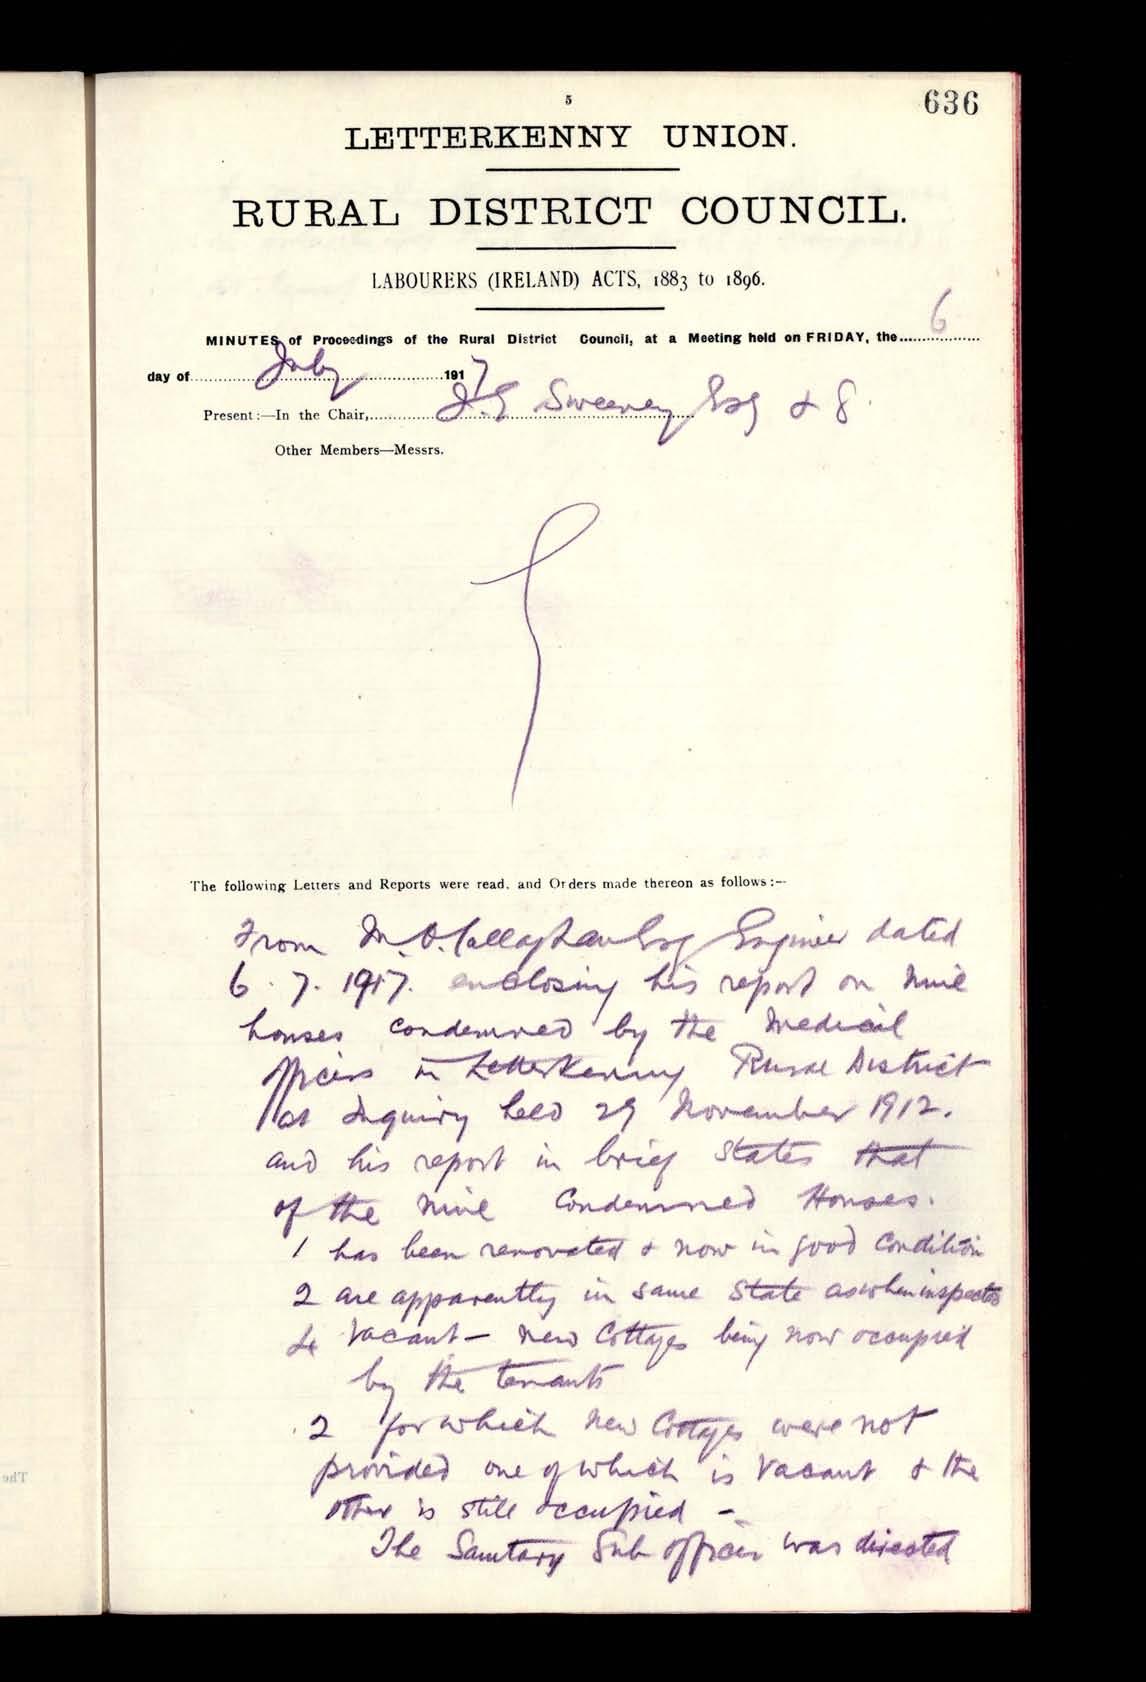 5
636
LETTERKENNY UNION.
RURAL DISTRICT COUNCIL.
LABOURERS (IRELAND) ACTS, 1883 to 1896.
MINUTES of Proceedings of the Rural District Council, at a Meeting held on FRIDAY, the 6
day of July 1917
Present:—In the Chair, J. G Sweeney Esq & 8.
Other Members—Messrs.
The following Letters and Reports were read, and Orders made thereon as follows:—
From M. O.Callaghan Esq Engineer dated
6. 7. 1917. enclosing his report on nine
houses condemned by the Medical
officers in Letterkenny Rural District
at Inquiry held 29 November 1912.
and his report in brief states that
of the nine Condemned Houses.
1 has been renovated & now in good Condition
2 are apparently in same state as when inspected
4 Vacant - new Cottages being now occupied
by the tenants
2 for which new Cottages were not
provided one of which is Vacant & the
other is still occupied -
The Sanitary Sub officer was directed
The